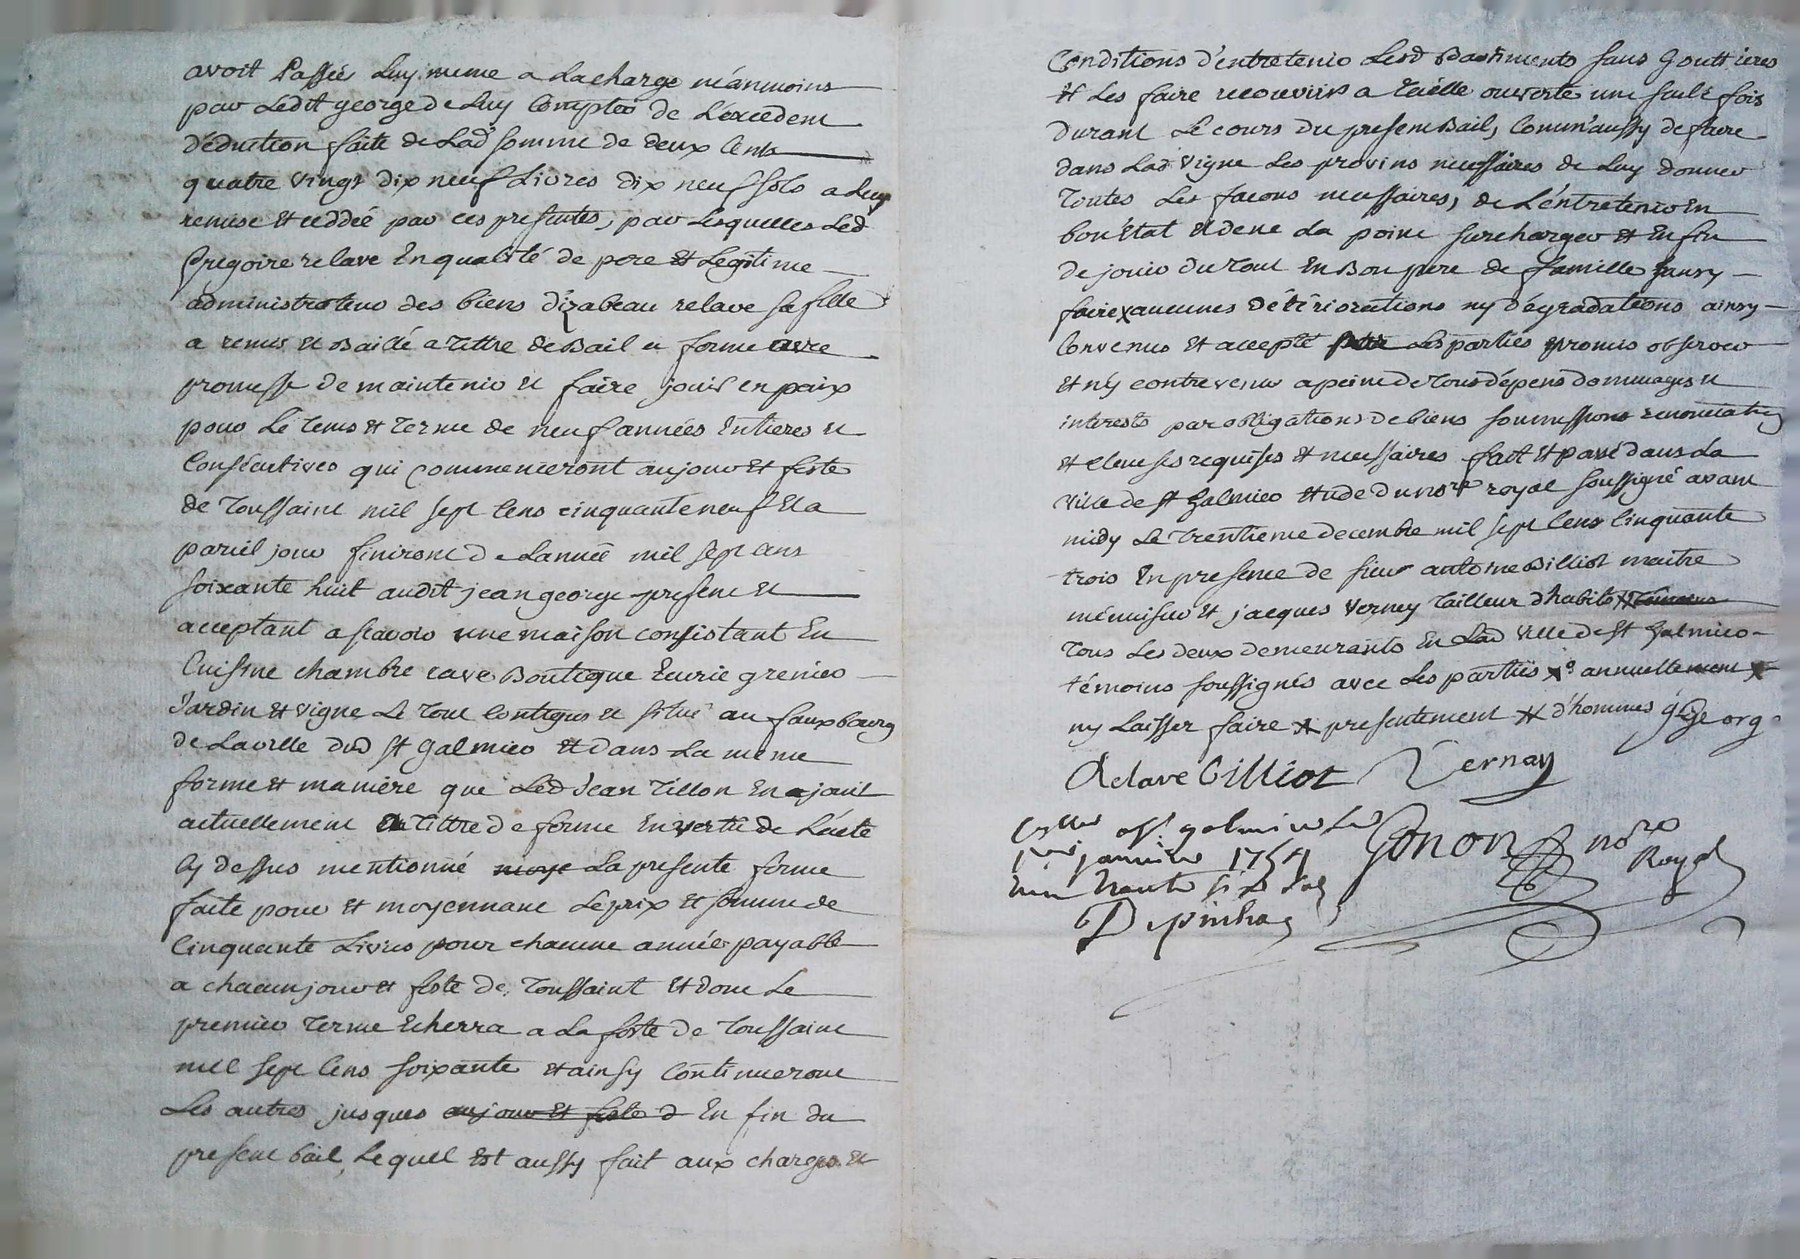 avoit Passée Luy meme a La charge néanmoins
par Ledit george de Luy Compter de L'excedent
déduction faite de Lad somme de deux Cents
quatre vingt dix neuf Livres dix neuf sols a Luy
remise et ceddée par ces presentes, par Lesquelles Led
Gregoire relave En qualité de pere et Legitime
administrateur des biens d'izabeau relave sa fille
a remis et Baillé a tittre de Bail a ferme avec
promesse de maintenir et faire jouir en paix
pour Le tems et terme de neuf années Entieres et
Consécutives qui Commenceront au jour et feste
de Toussaint mil sept Cens cinquante neuf et a
pareil jour finiront de Lannée mil sept cens
soixante huit audit jean george present et
acceptant a scavoir une maison consistant En
Cuisine chambre cave Boutique Ecurie grenier
Jardin et vigne Le tout Contigus et situé au fauxbourg
de Laville dud St Galmier et dans La même
forme et maniére que Led Jean Tillon En jouit
actuellement a Tittre de ferme En vertu de L'acte
Cy dessus mentionné moye La presente ferme
faite pour et moyennant Le prix et somme de
Cinquante Livres pour chacune année payable
a chacun jour et feste de Toussaint et dont Le
premier terme Echerra a La feste de Toussaint
mil sept Cens soixante et ainsy Continueront
Les autres jusques au jour et feste d En fin du
present bail, Lequel Est aussy fait aux charges et
Conditions d'entretenir Lesd Bastiments sans Gouttieres
et Les faire recouvrir a tuille ouverte une seule fois
Durant Le cours Du present Bail, Comm'aussy de faire
dans Lad vigne Les provins necessaires de Luy donner
Toutes Les facons necessaires, de L'entretenir En
bon Etat et de ne La point surcharger et Enfin
De jouir du tout En Bon pere de famille sans y
faire x aucunes détériorations ny dégradations ainsy
Convenus et accepté Les parties promis observer
et n'y contrevenir a peine de tous dépens dommages et
interests par obligations de biens soumissions renonciations
et clauses requises et necessaires fait et passé dans La
ville de St Galmier Etude du nore royal soussigné avant
midy Le trentieme decembre mil sept Cens Cinquante
trois En presence de sieur antoine Billiot maitre
ménuisier et jacques verney Tailleur d'habits x témoins
Tous Les deux demeurants En Lad ville de St Galmier
témoins soussignés avec Les parties x annuellement x
ny Laisser faire x presentement x d'hommes j george
Relave Billiot Vernay
Gonon nore Royal
a St galmier Le
janvier 1754